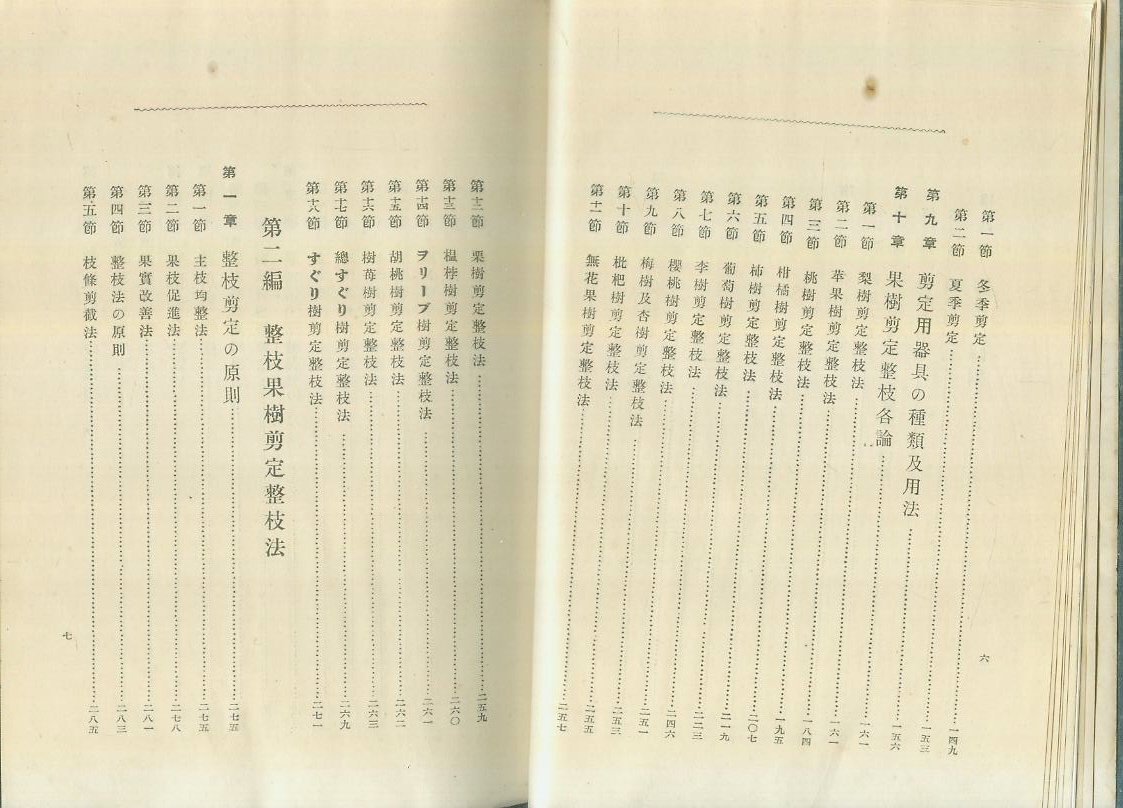 第一節 冬季剪定……一四九
第二節 夏季剪定……一五三
第九章 剪定用器具の種類及用法……一五六
第十章 果樹剪定整枝各論……一六一
第一節 梨樹剪定整枝法……一六一
第二節 苹果樹剪定整枝法……一八四
第三節 桃樹剪定整枝法……一九五
第四節 柑橘樹剪定整枝法……二〇七
第五節 柿樹剪定整枝法……二一九
第六節 葡萄樹剪定整枝法……二二三
第七節 李樹剪定整枝法……二四六
第八節 櫻桃樹剪定整枝法……二五一
第九節 梅樹及杏樹剪定整枝法……二五三
第十節 枇杷樹剪定整枝法……二五五
第十一節 無花果樹剪定整枝法……二五七
六
第十二節 栗樹剪定整枝法……二五九
第十三節 榲桲樹剪定整枝法……二六〇
第十四節 ヲリーブ樹剪定整枝法……二六一
第十五節 胡桃樹剪定整枝法……二六二
第十六節 樹苺樹剪定整枝法……二六三
第十七節 總すぐり樹剪定整枝法……二六九
第十八節 すぐり樹剪定整枝法……二七一
第二編 整枝果樹剪定整枝法
第一章 整枝剪定の原則……二七五
第一節 主枝均整法……二七五
第二節 果枝促進法……二七八
第三節 果實改善法……二八一
第四節 整枝法の原則……二八三
第五節 枝條剪截法……二八五
七